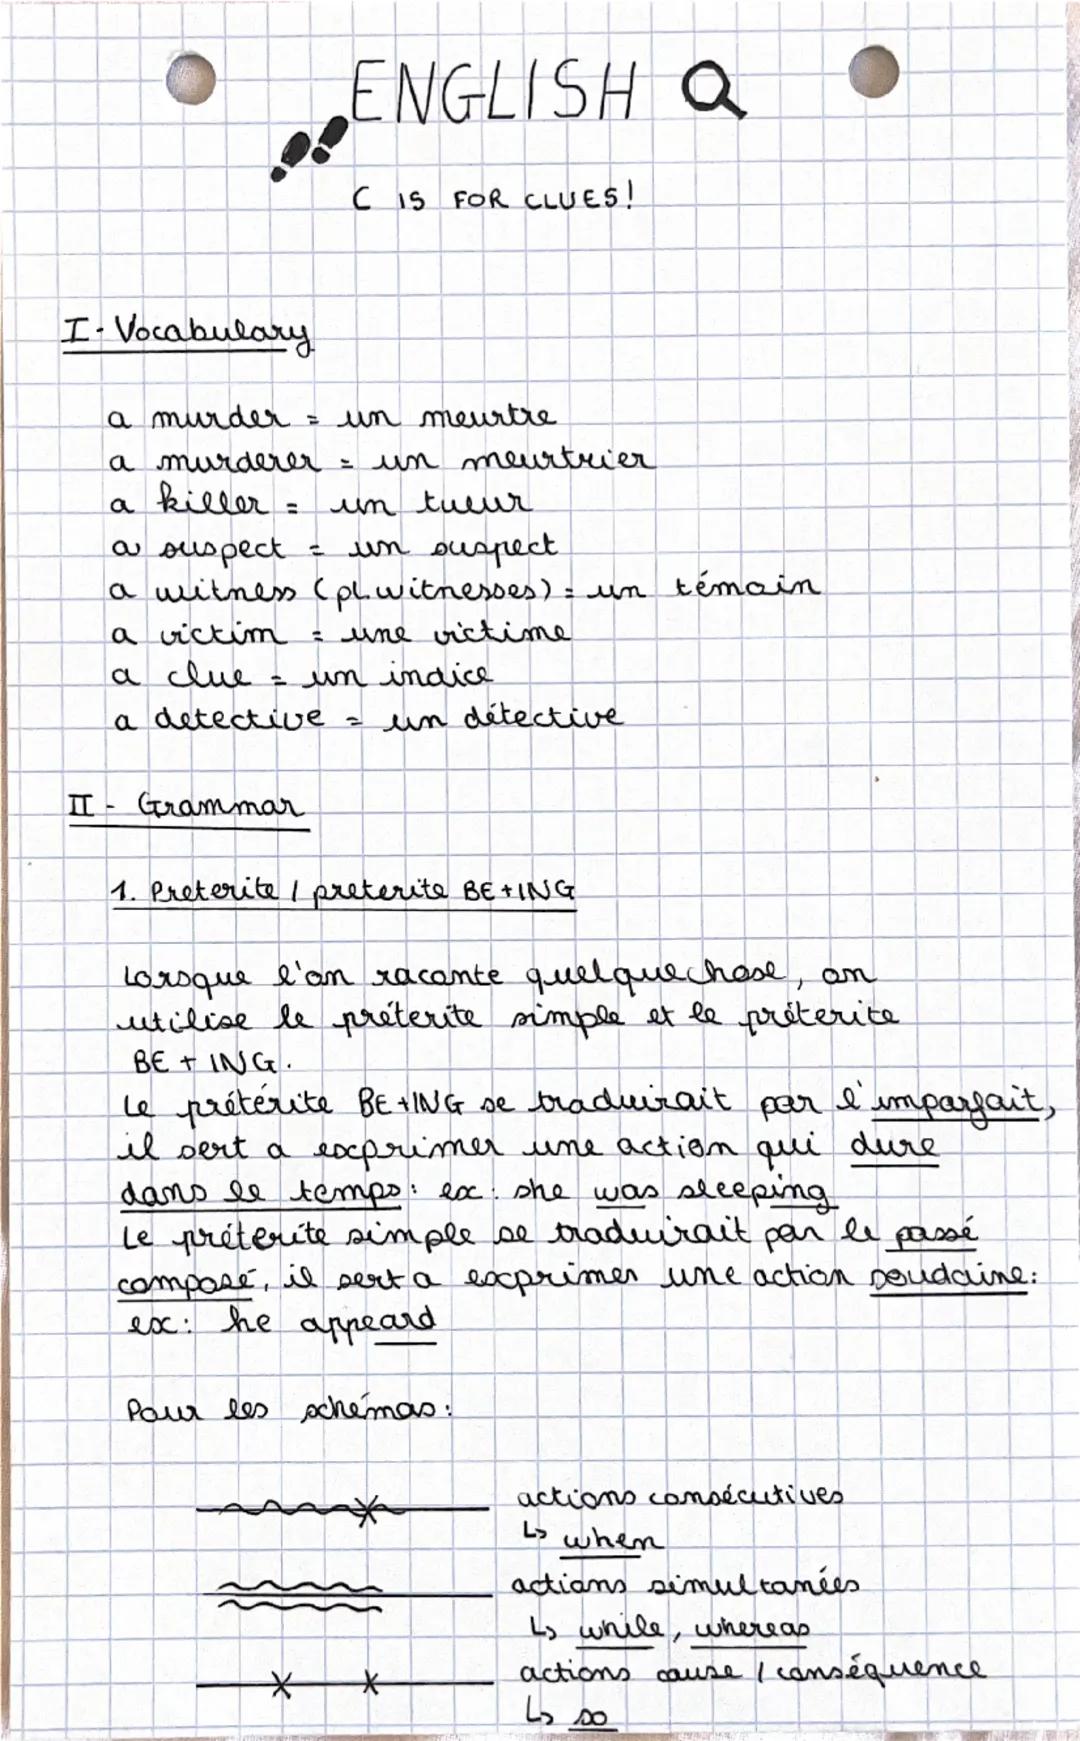 ENGLISH
C IS FOR CLUES!
I - Vocabulary
a murder = un meurtre
a murderer = un meurtrier
a killer = un tueur
a suspect = un suspect
a witness (pl. witnesses) = un témoin
a victim = une victime
a clue = un indice
a detective = un détective
II - Grammar
1. Preterite / preterite BE+ING
Lorsque l'on raconte quelquechose, on
utilise le préterite simple et le préterite
BE + ING.
Le prétérite BE+ING se traduirait par l'imparfait,
il sert a exprimer une action qui dure
dans le temps: ex: she was sleeping
Le préterite simple se traduirait par le passé
composé, il sert a exprimer une action soudaine:
ex: he appeard
Pour les schémas:
actions consécutives
↳ when
actions simultanées
↳ while, whereas
actions cause / conséquence
↳ so